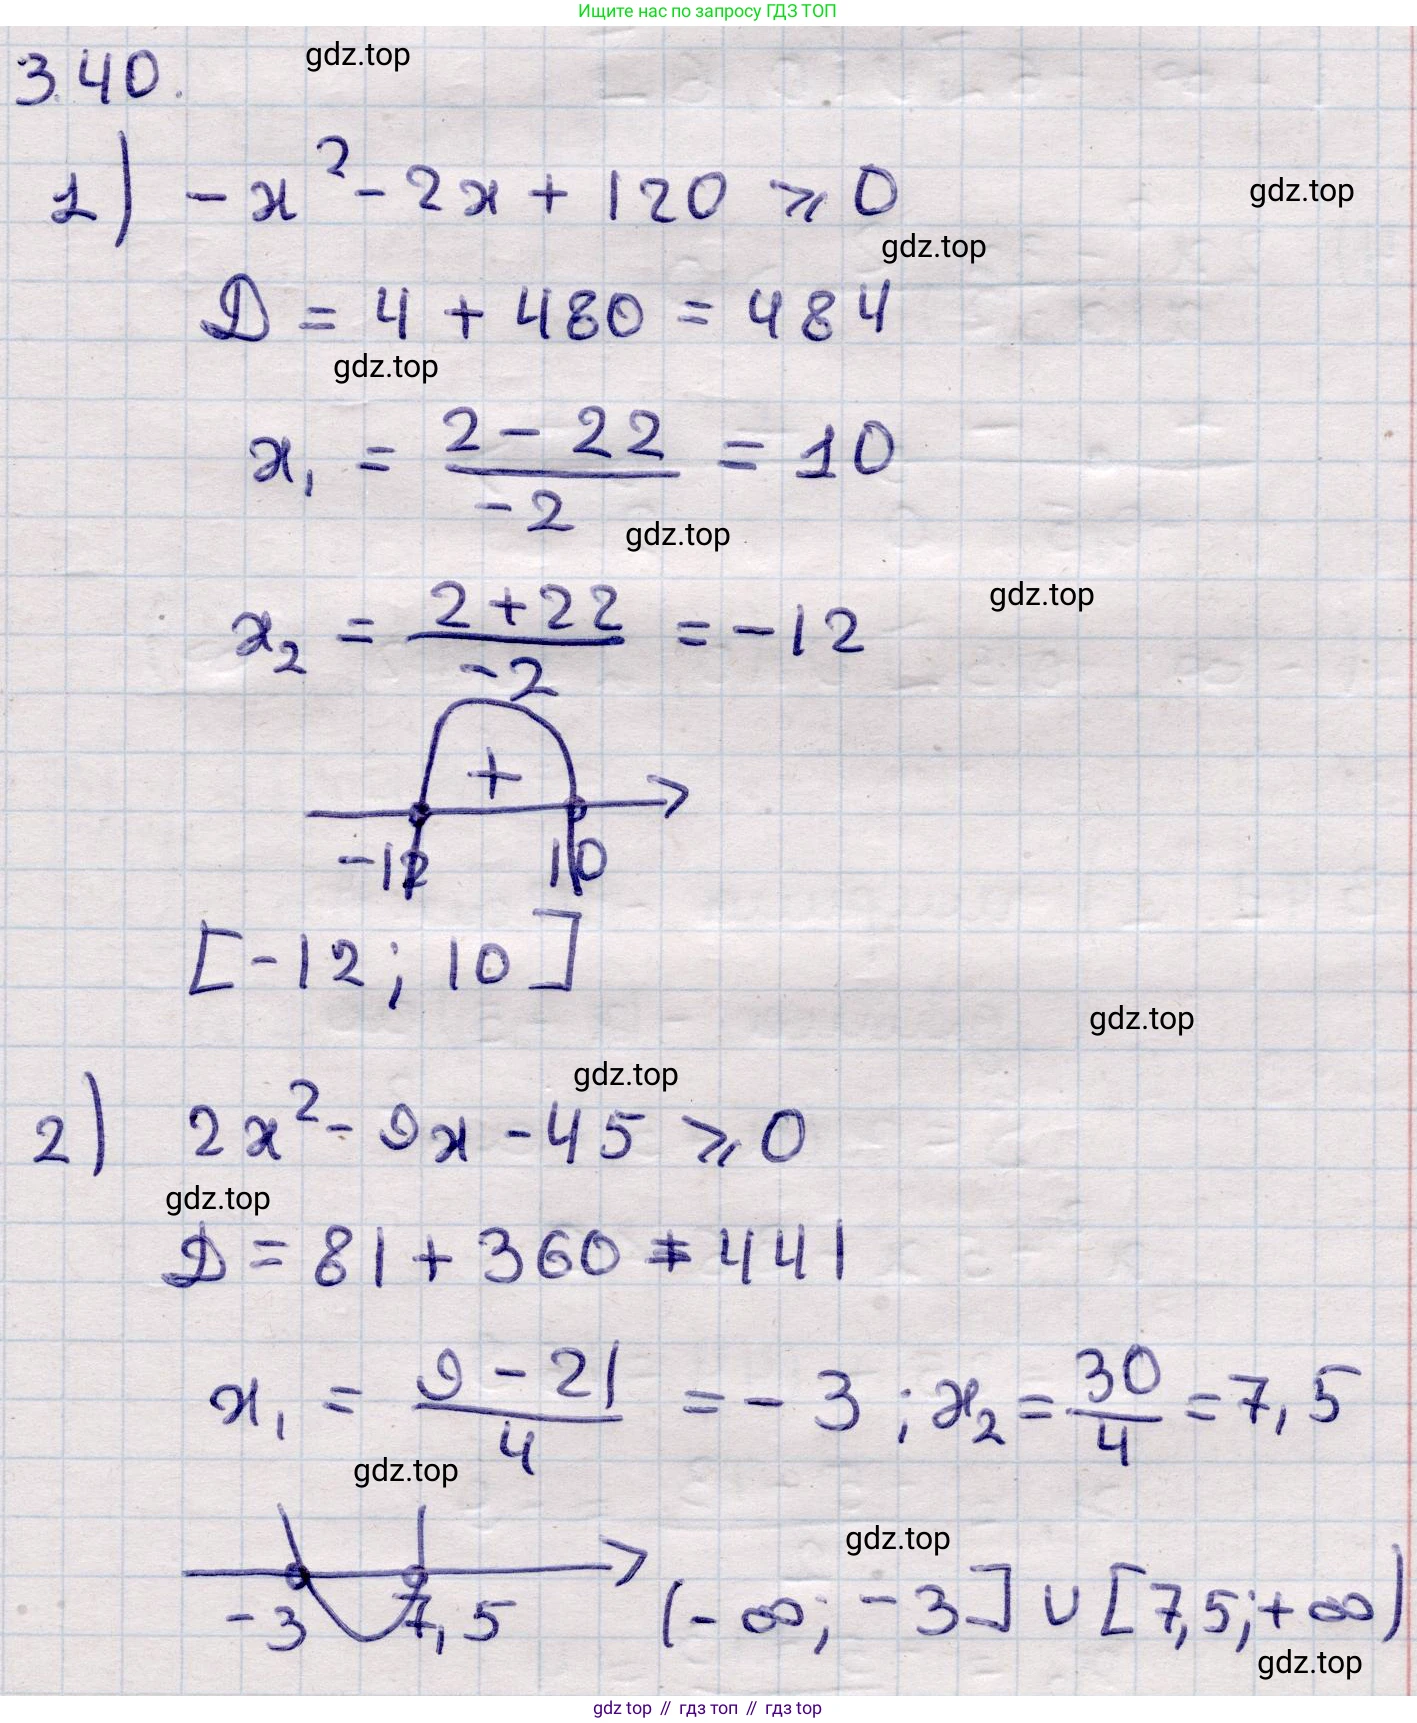 Ищите нас по запросу ГДЗ ТОП
3.40.
gdz.top
1) -x² - 2x + 120 ⩾ 0
gdz.top
gdz.top
D = 4 + 480 = 484
gdz.top
x₁ = (2 - 22)/(-2) = 10
gdz.top
gdz.top
x₂ = (2 + 22)/(-2) = -12
+
-12 10
[-12; 10]
gdz.top
gdz.top
2) 2x² - 9x - 45 ⩾ 0
gdz.top
D = 81 + 360 = 441
x₁ = (9 - 21)/4 = -3; x₂ = 30/4 = 7,5
gdz.top
gdz.top
-3 7,5 (-∞; -3] ∪ [7,5; +∞)
gdz.top
gdz top // гдз топ // гдз top